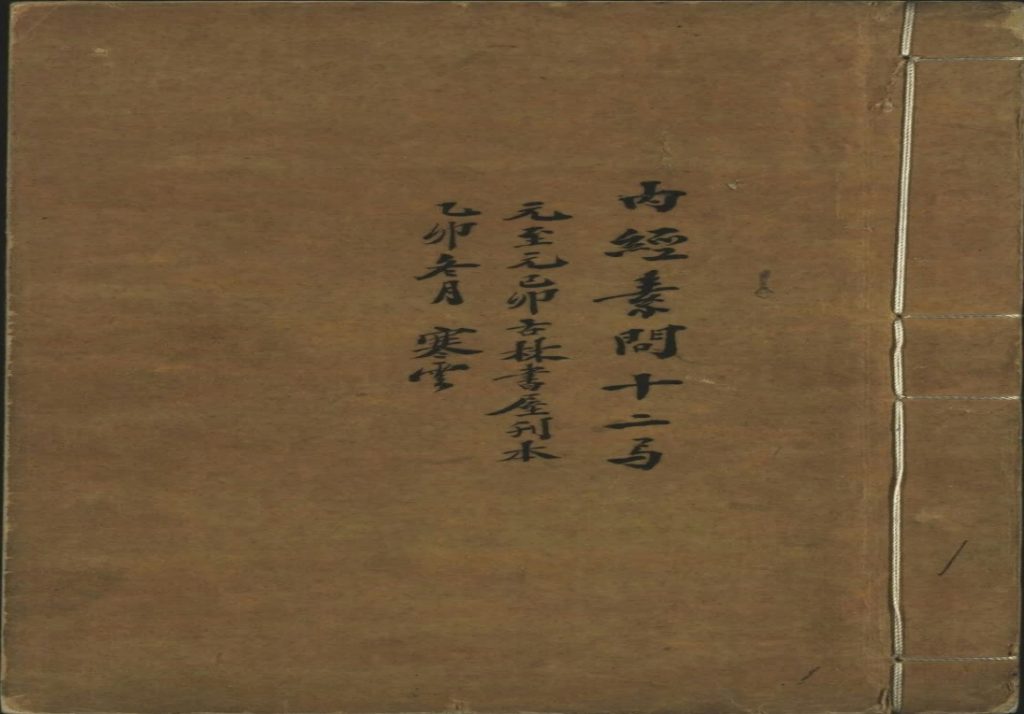 內經素問十二弓
元至元己卯古林書屋刊本
乙卯冬月 寒雲